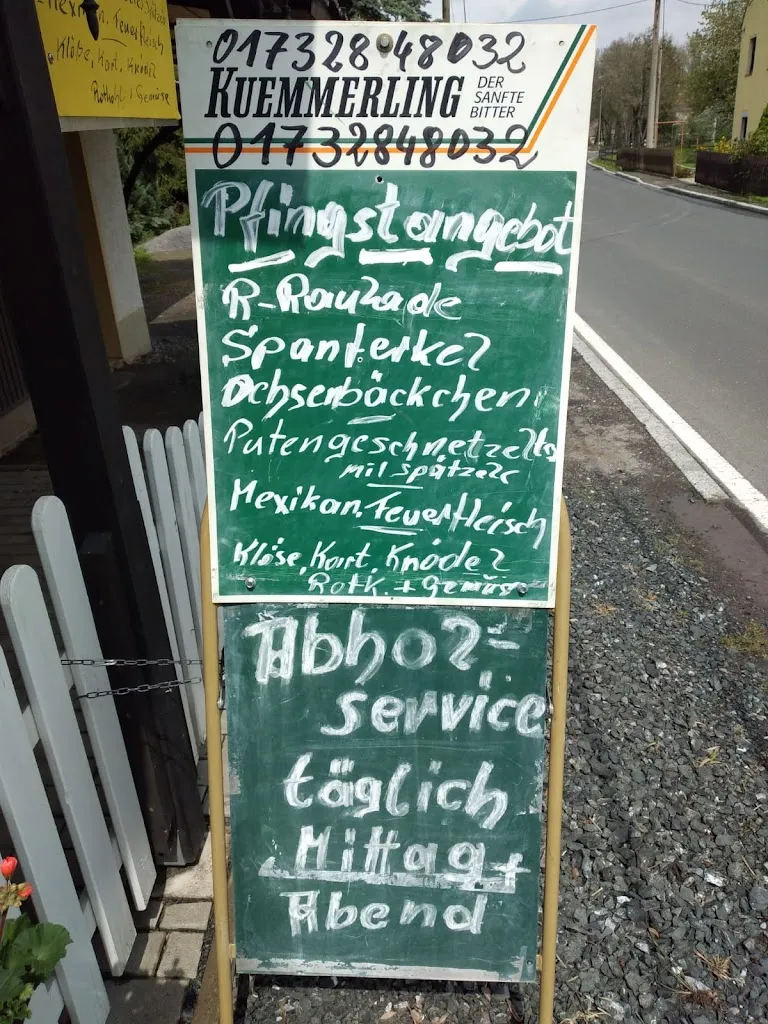 Mexikan. Feuerfleisch
Klöße, Kart. Knödel
Gemüse
01732848032
KUEMMERLING
DER
SANFTE
BITTER
01732848032
Pfingstangebot
R-Roulade
Spanferkel
Ochsenbäckchen
Putengeschnetzeltes
mit Spätzele
Mexikan. Feuerfleisch
Klöse, Kart. Knödel
Rotk. + Gemüse
Abhol-
service
täglich
Mittag +
Abend